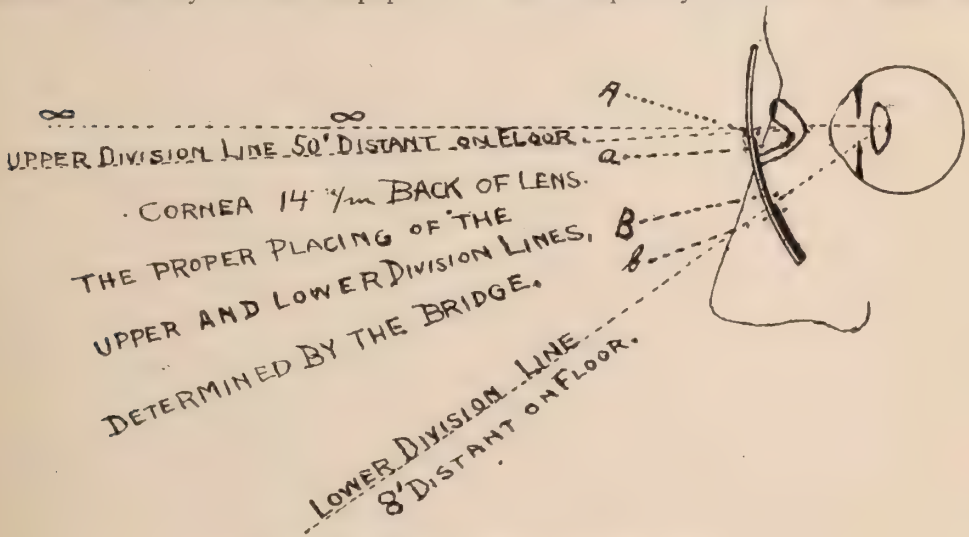 ∞ ∞
UPPER DIVISION LINE 50' DISTANT ON FLOOR.
CORNEA 14 m/m BACK OF LENS.
THE PROPER PLACING OF THE
UPPER AND LOWER DIVISION LINES,
DETERMINED BY THE BRIDGE.
A
a
B
b
LOWER DIVISION LINE
8' DISTANT ON FLOOR.